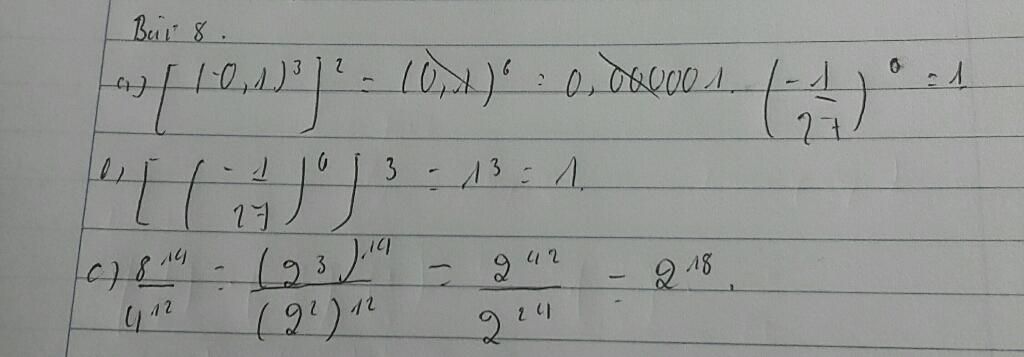 Bài 8.
a) [(-0,1)³]² = (0,1)⁶ = 0,000001. (-1/27)⁰ = 1
b) [(-1/27)⁰]³ = 1³ = 1.
c) 8¹⁴/4¹² = (2³)¹⁴/(2²)¹² = 2⁴²/2²⁴ = 2¹⁸.